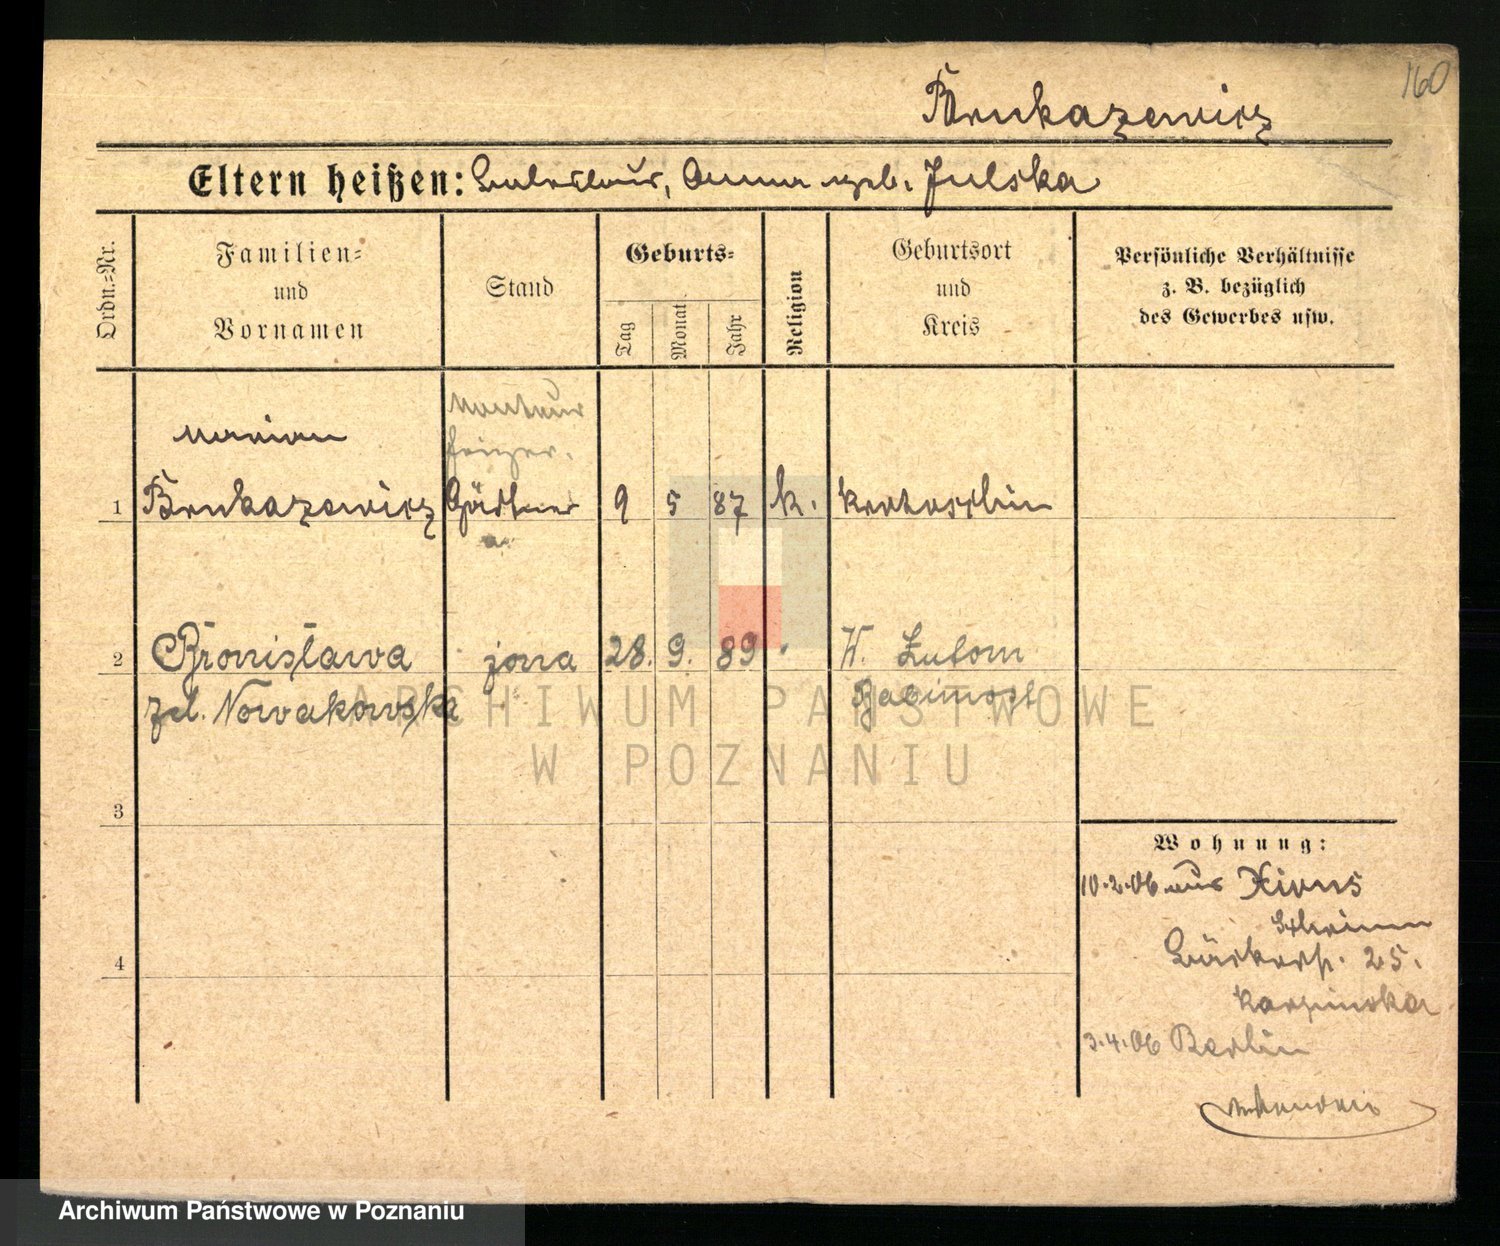 160
Brukazewicz
Eltern heißen: Ladislaus, Anna geb. Julska
Ordn.=Nr.
Familien=
und
Vornamen
Stand
Geburts=
Tag
Monat
Jahr
Religion
Geburtsort
und
Kreis
Persönliche Verhältnisse
z. B. bezüglich
des Gewerbes usw.
Monteur
Marian
1 Brukazewicz Gärtner 9 5 87 k. Krotoschin
2 Bronisława żona 28. 9. 89 W. Lutom
zd. Nowakowska Babimost
ARCHIWUM PAŃSTWOWE
W POZNANIU
3
Wohnung:
10.2.06 aus Xions
Schrimm
4
Bäckerstr. 25.
Karpinska
3.4.06 Berlin
Archiwum Państwowe w Poznaniu